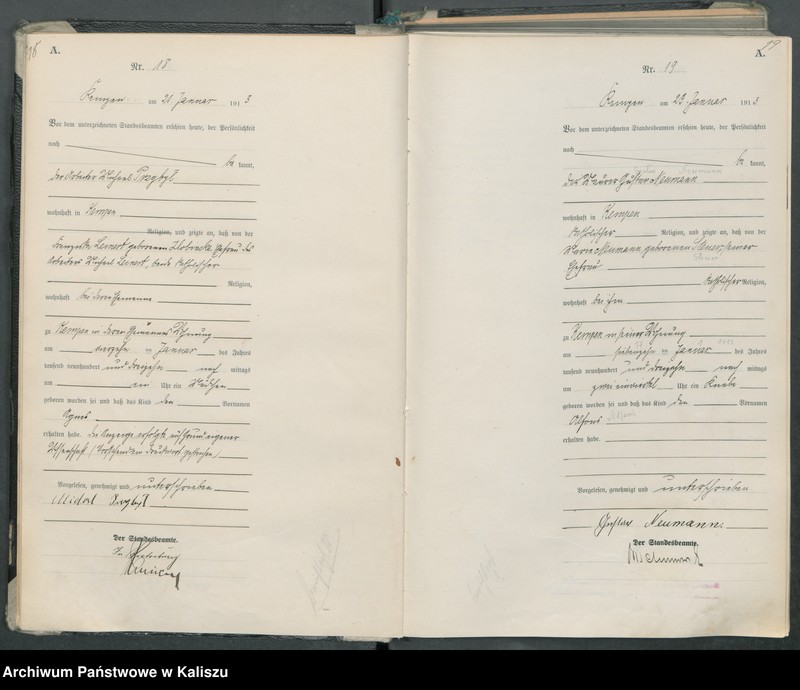 18
A.
Nr. 18
Kempen am 21. Januar 1913
Vor dem unterzeichneten Standesbeamten erschien heute, der Persönlichkeit
nach
be kannt,
der Arbeiter Michael
wohnhaft in Kempen
Religion, und zeigte an, daß von der
geborenen Ehefrau des
Arbeiters Michael beide katholischer
Religion,
wohnhaft bei ihrem Ehemanne
zu Kempen in ihrer Wohnung
am vierzehn ten Januar des Jahres
tausend neunhundert und dreizehn nach mittags
um ein Uhr ein Mädchen
geboren worden sei und daß das Kind den Vornamen
Agnes
erhalten habe. Die Anzeige erfolgte aus eigener
Wissenschaft. (Vorstehendem Druckwort gestrichen)
Vorgelesen, genehmigt und unterschrieben
Der Standesbeamte.
In Vertretung
19
A.
Nr. 19
Kempen am 23. Januar 1913
Vor dem unterzeichneten Standesbeamten erschien heute, der Persönlichkeit
nach
be kannt,
der Maurer Gustav Neumann
wohnhaft in Kempen
katholischer Religion, und zeigte an, daß von der
Neumann geborenen seiner
Ehefrau
katholischer Religion,
wohnhaft bei ihm
zu Kempen in seiner Wohnung
am siebzehn ten Januar des Jahres
tausend neunhundert und dreizehn nach mittags
um zwei einviertel Uhr ein Knabe
geboren worden sei und daß das Kind den Vornamen
Alfons
erhalten habe.
Vorgelesen, genehmigt und unterschrieben
Gustav Neumann.
Der Standesbeamte.
Archiwum Państwowe w Kaliszu